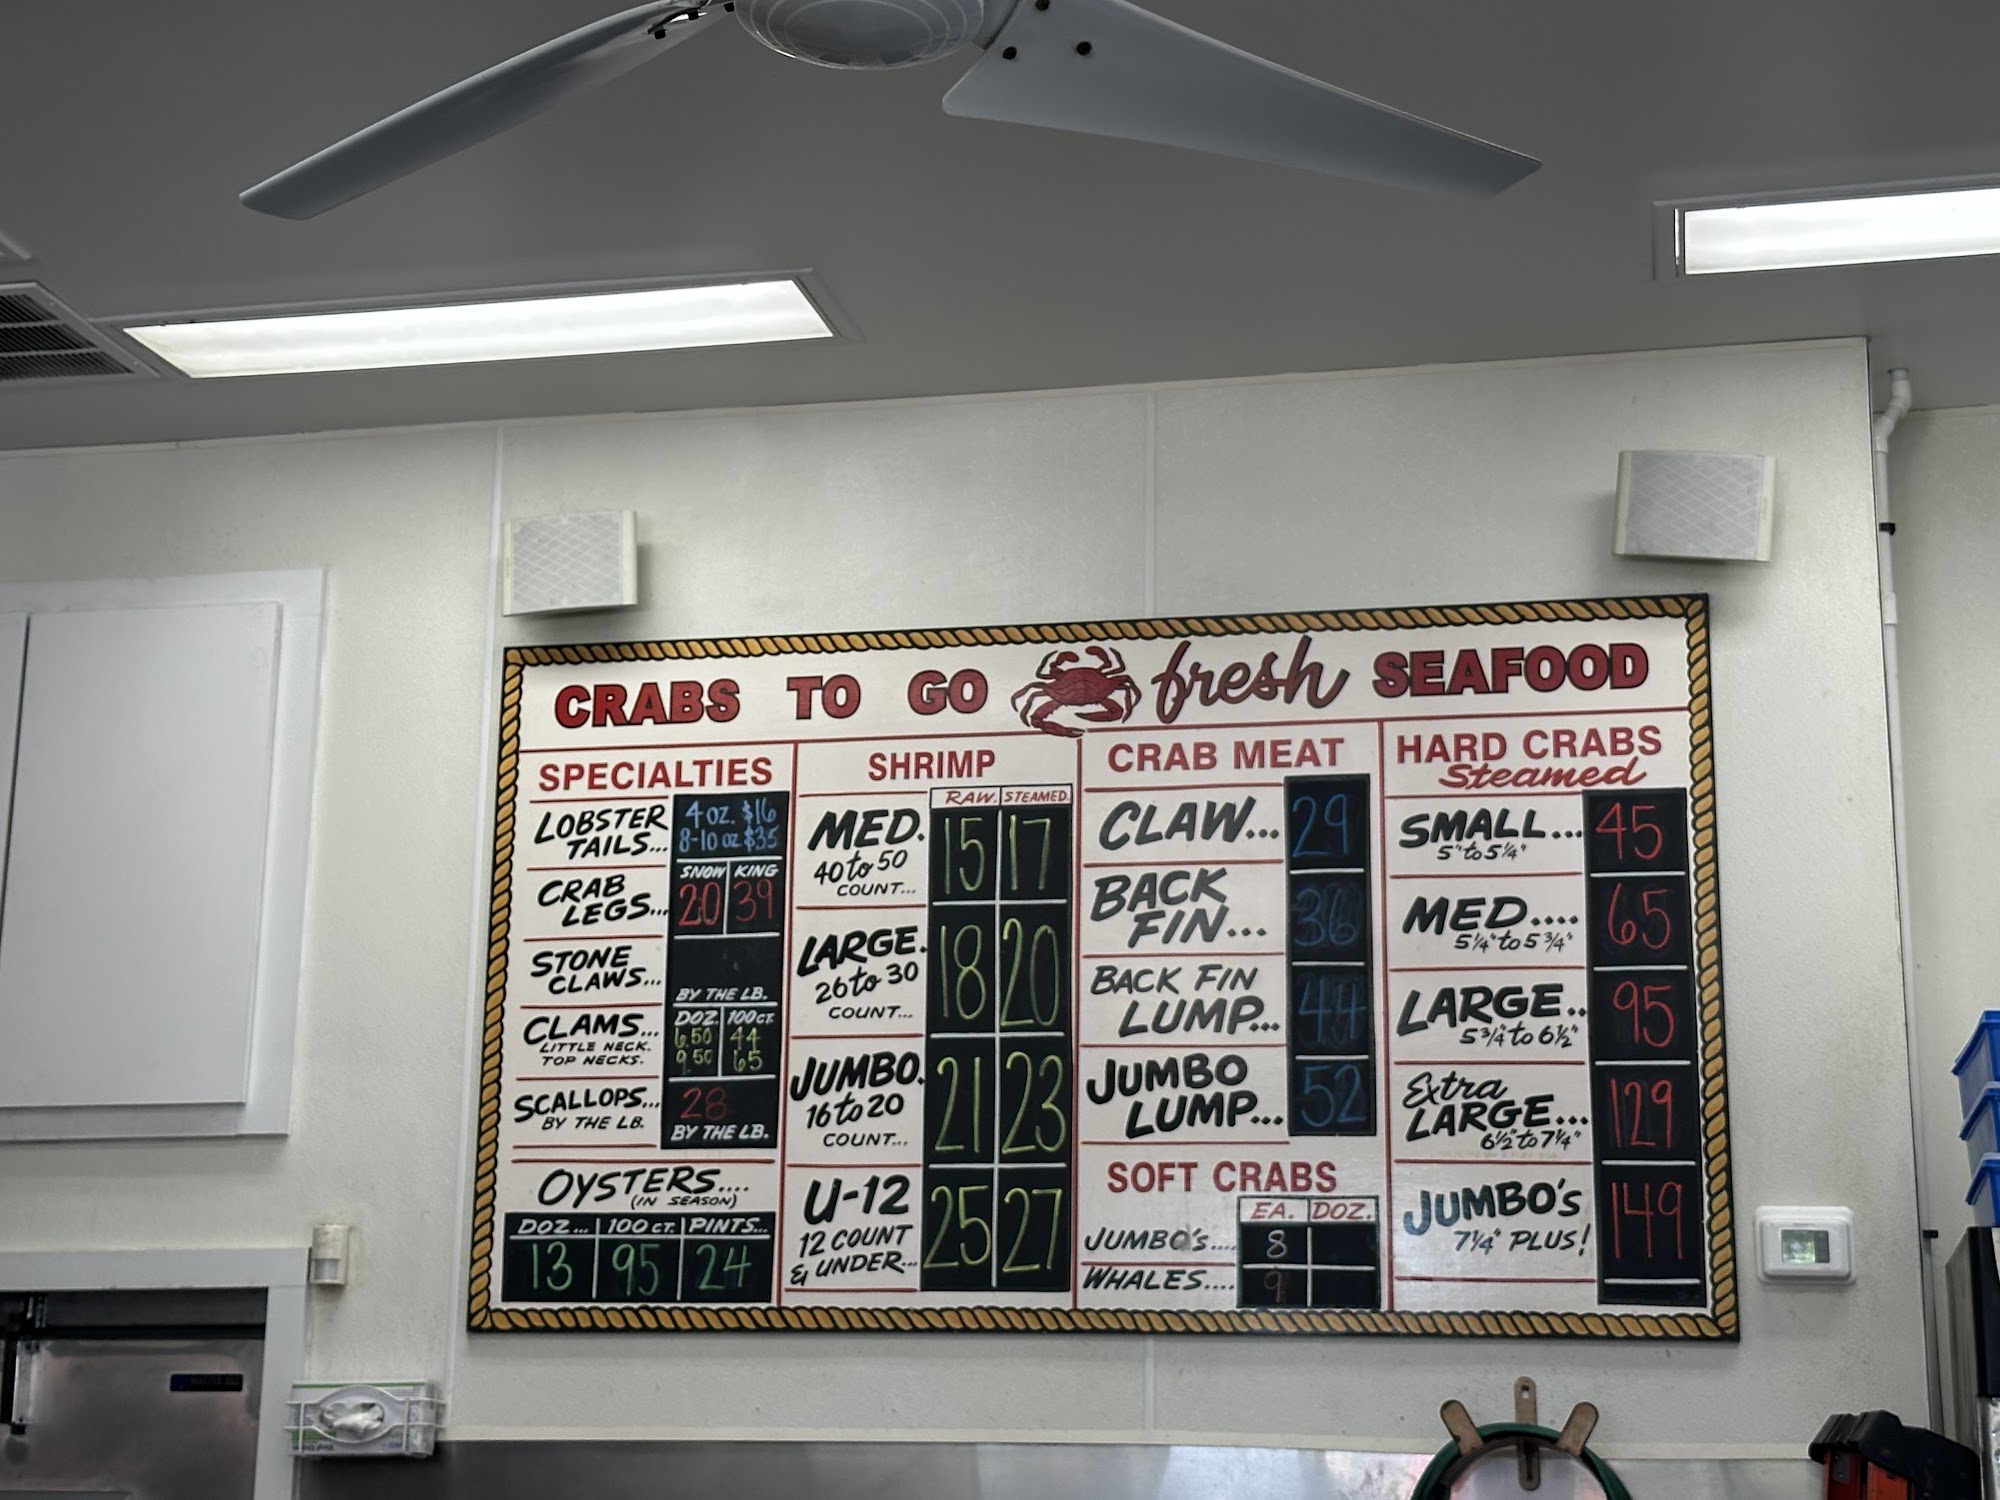 CRABS TO GO fresh SEAFOOD
SPECIALTIES
LOBSTER TAILS... 4 OZ. $16
8-10 OZ $35
SNOW KING
CRAB LEGS... 20 39
STONE CLAWS...
BY THE LB.
DOZ. 100 CT.
CLAMS... 6.50 44
LITTLE NECK.
TOP NECKS. 9.50 65
SCALLOPS... 28
BY THE LB. BY THE LB.
OYSTERS....
(IN SEASON)
DOZ... 100 CT. PINTS...
13 95 24
SHRIMP
RAW. STEAMED.
MED. 15 17
40 to 50
COUNT...
LARGE. 18 20
26 to 30
COUNT...
JUMBO. 21 23
16 to 20
COUNT...
U-12 25 27
12 COUNT
& UNDER...
CRAB MEAT
CLAW... 29
BACK
FIN... 36
BACK FIN
LUMP... 44
JUMBO
LUMP... 52
SOFT CRABS
EA. DOZ.
JUMBO's.... 8
WHALES.... 9
HARD CRABS
Steamed
SMALL... 45
5" to 5 1/4"
MED.... 65
5 1/4" to 5 3/4"
LARGE.. 95
5 3/4" to 6 1/2"
Extra
LARGE... 129
6 1/2" to 7 1/4"
JUMBO's 149
7 1/4" PLUS!